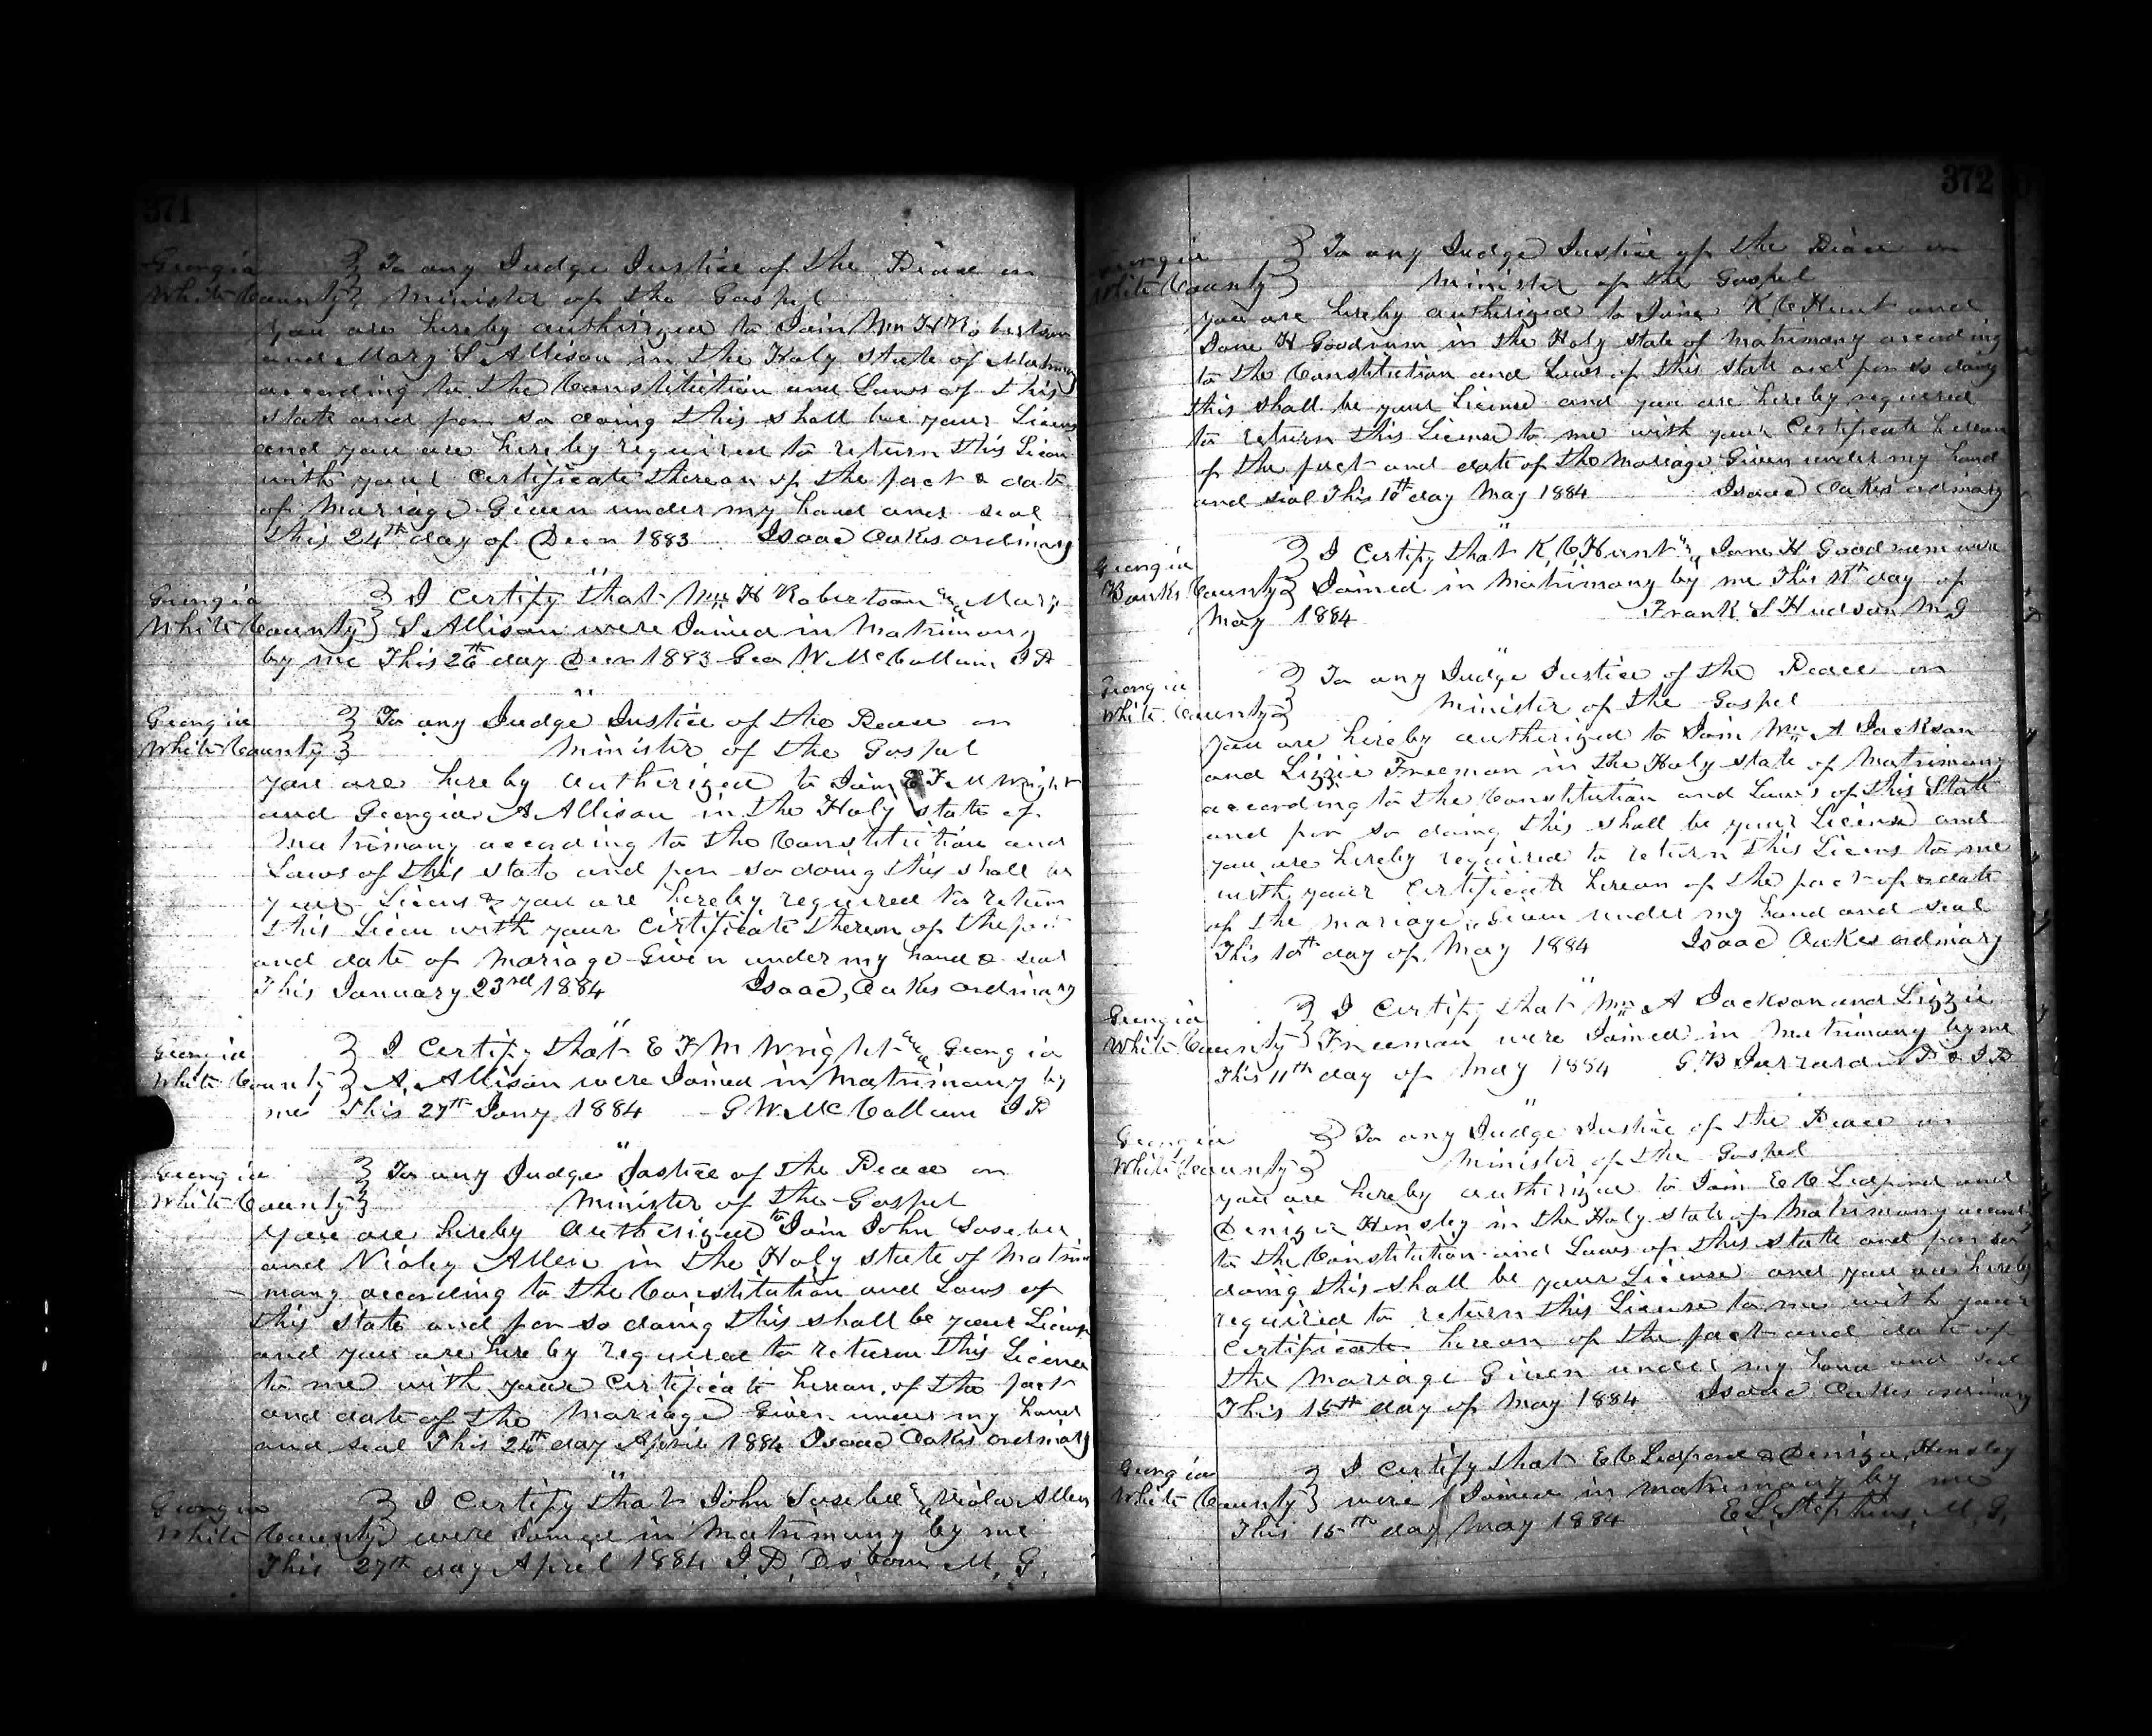 371
Georgia } To any Judge Justice of the Peace or
White County } Minister of the Gospel
you are hereby authirized to Join Wm H Robertson
and Mary S Allison in the Holy state of Matrimony
according to the Constitution and Laws of this
state and for so doing this shall be your Licens
and you are hereby required to return this Licen
with your Certificate thereon of the fact & date
of Mariage Given under my hand and seal
this 24th day of Decr 1883 Isaac Oakes ordinary
Georgia } I Certify that Wm H Robertson and Mary
White County } S Allison were Joined in Matrimony
by me This 26th day Decr 1883 Geo W McCollum J P
Georgia } To any Judge Justice of the Peace or
White County } Minister of the Gospel
you are hereby Autherized to Join E F M Wright
and Georgia A Allison in the Holy state of
Matrimony according to the Constitution and
Laws of this state and for so doing this shall be
your Licens & you are hereby required to return
this Licen with your Certificate thereon of the fact
and date of Mariage Given under my hand & seal
This January 23rd 1884 Isaac, Oakes ordinary
Georgia } I Certify that E F M Wright and Georgia
White County } A. Allison were Joined in Matrimony by
me This 27th Jany 1884 G W. McCollum J P
Georgia } To any Judge Justice of the Peace or
White County } Minister of the Gospel
you are hereby Autherized to Join John
and Violey Allen in the Holy state of Matri
mony according to the Constitution and Laws of
this state and for so doing this shall be your License
and you are here by required to return this License
to me with your Certificate hereon of the fact
and date of the Mariage Given under my hand
and seal This 26th day April 1884 Isaac Oakes ordinary
Georgia } I Certify that John and Viola Allen
White County } were Joined in Matrimony by me
This 27th day April 1884 J. D. Osborn M. G.
372
Georgia } To any Judge Justice of the Peace or
White County } Minister of the Gospel
you are hereby autherized to Joine K C Hunt and
Jane H Goodrum in the Holy state of Matrimony according
to the Constitution and Laws of this state and for so doing
this shall be your License and you are hereby required
to return this License to me with your Certificate hereon
of the fact and date of the Mariage Given under my hand
and seal This 10th day May 1884 Isaac Oakes ordinary
Georgia } I Certify that K C Hunt and Jane H Goodrum were
Banks County } Joined in Matrimony by me This 11th day of
May 1884 Frank S Hudson M G
Georgia } To any Judge Justice of the Peace or
White County } Minister of the Gospel
you are hereby autherized to Join Wm A Jackson
and Lizzie Freeman in the Holy state of Matrimony
according to the Constitution and Laws of this State
and for so doing this shall be your License and
you are hereby required to return this Licens to me
with your Certificate hereon of the fact of & date
of the mariage, Given under my hand and seal
This 10th day of May 1884 Isaac Oakes ordinary
Georgia } I Certify that Wm A Jackson and Lizzie
White County } Freeman were Joined in Matrimony by me
This 11th day of May 1884 G B
Georgia } To any Judge Justice of the Peace or
White County } Minister of the Gospel
you are hereby autherized to Join E C Ledford and
Deniza Hensley in the Holy state of Matrimony according
to the Constitution and Laws of this state and for so
doing this shall be your License and you are hereby
required to return this License to me with your
Certificate hereon of the fact and date of
the Mariage Given under my hand and seal
This 15th day of May 1884 Isaac Oakes ordinary
Georgia } I Certify that E C Ledford & Deniza Hensley
White County } were Joined in Matrimony by me
This 15th day May 1884 E L Stephens, M. G,